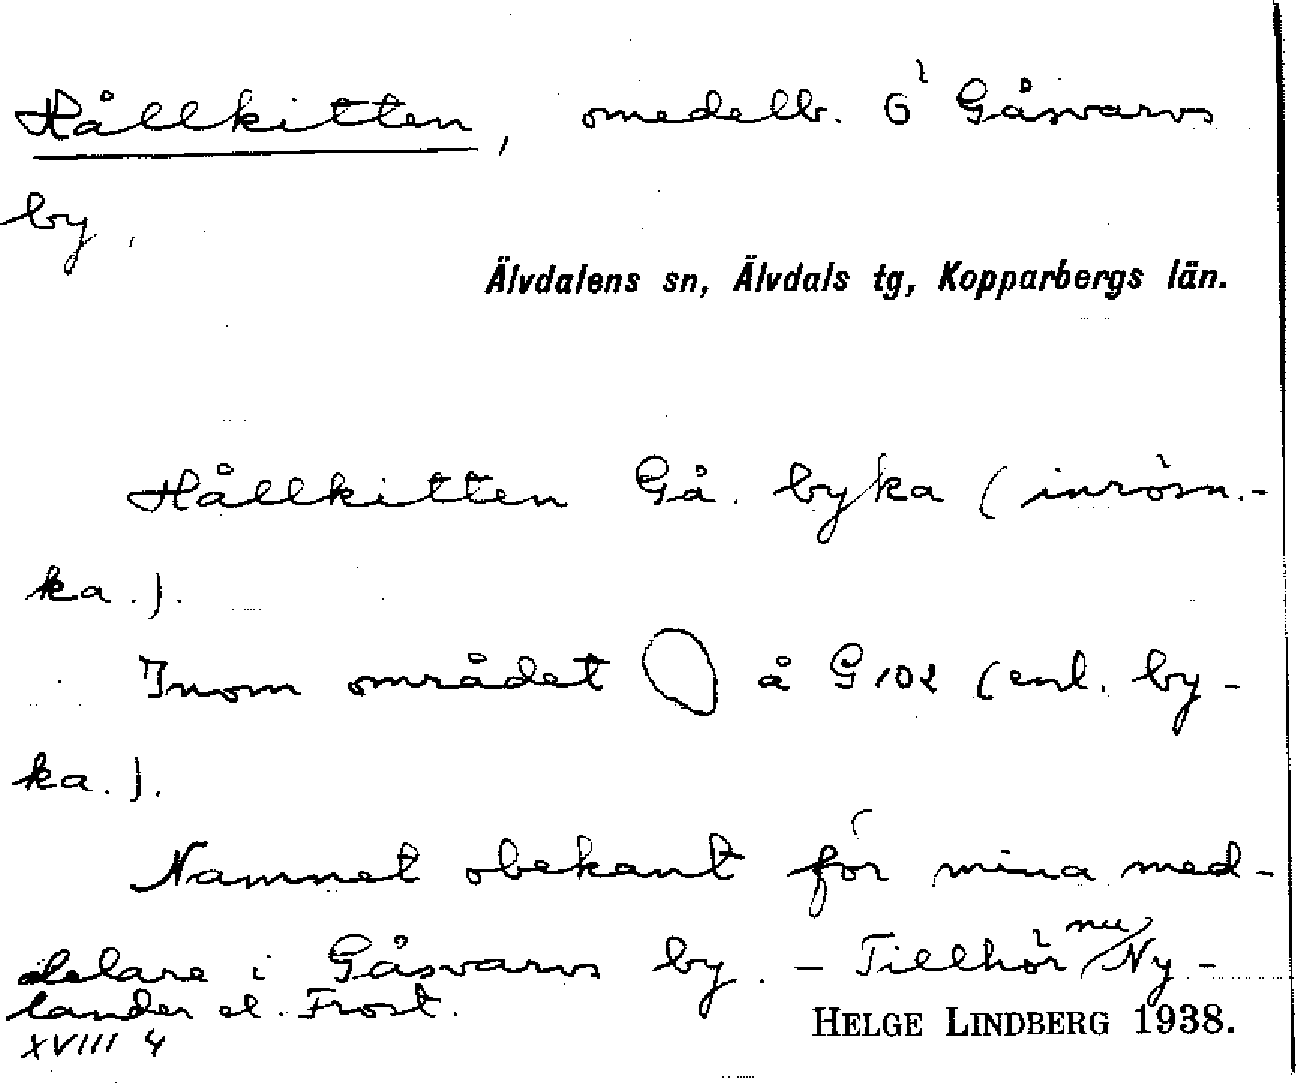 Hållkitten, omedelb. Ö Gåsvarvs
by.
Älvdalens sn, Älvdals tg, Kopparbergs län.
Hållkitten Gå. byka (inrösn.-
ka.).
Inom området å G 102 (enl. by-
ka.).
Namnet obekant för mina med-
delare i Gåsvarvs by. – Tillhör nu Ny-
lander el. Frost.
XVIII 4
HELGE LINDBERG 1938.